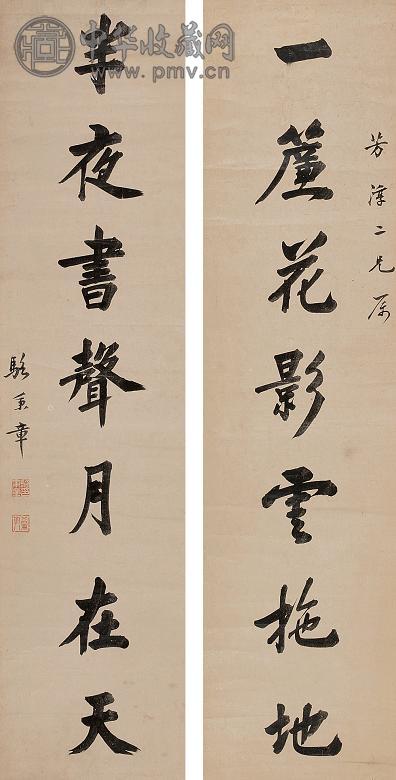 芳 二兄属
一簾花影雲拖地
半夜書聲月在天
駱秉章
中华收藏网
www.pmv.cn